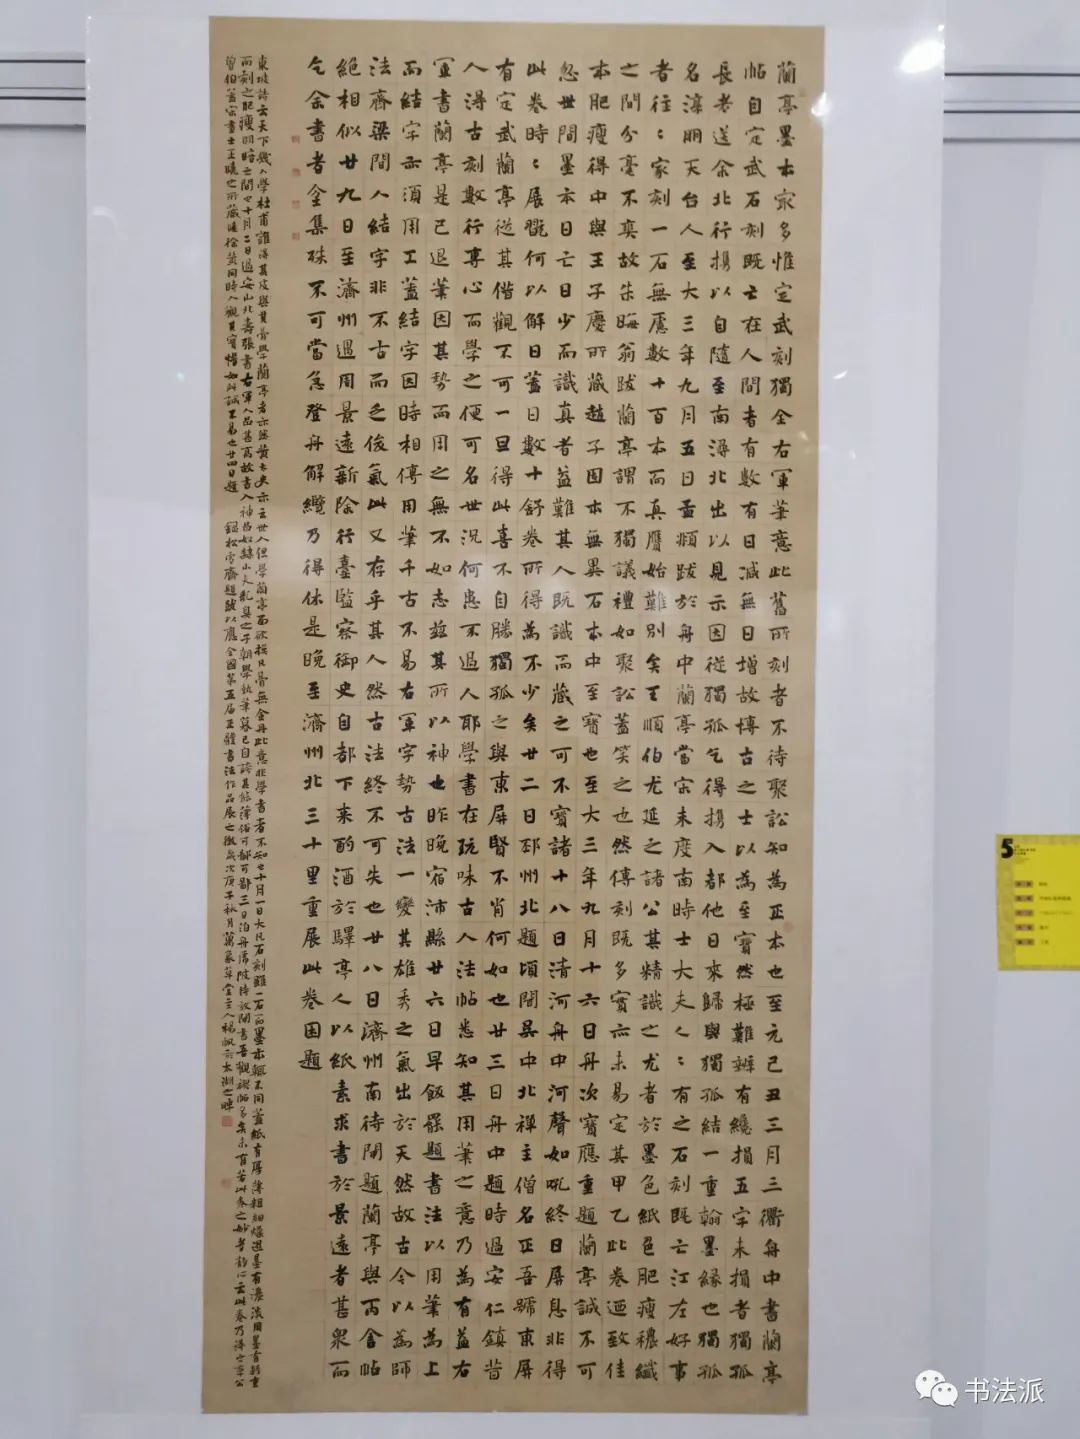 蘭亭墨本最多惟定武刻獨全右軍筆意此舊所刻者不待聚訟知為正本也至元己丑三月三衢舟中書蘭亭
帖自定武石刻既亡在人間者有數有日減無日增故博古之士以為至寶然極難辨有纔損五字未損者獨孤
長老送余北行携以自隨至南潯北出以見示因從獨孤乞得携入都他日來歸與獨孤結一重翰墨緣也獨孤
名淳朋天台人至大三年九月五日孟頫跋於舟中蘭亭當宋未度南時士大夫人〻有之石刻既亡江左好事
者往〻家刻一石無慮數十百本而真贋始難別矣王順伯尤延之諸公其精識之尤者於墨色紙色肥瘦穠纖
之間分毫不爽故朱晦翁跋蘭亭謂不獨議禮如聚訟蓋笑之也然傳刻既多實亦未易定其甲乙此卷迺致佳
本肥瘦得中與王子慶所藏趙子固本無異石本中至寶也至大三年九月十六日舟次寶應重題蘭亭誠不可
忽世間墨本日亡日少而識真者益難其人既識而藏之可不寶諸十八日清河舟中河聲如吼終日屏息非得
此卷時〻展翫何以解日蓋日數十舒卷所得為不少矣廿二日邳州北題頃聞吳中北禪主僧名正吾號東屏
有定武蘭亭從其借觀不可一旦得此喜不自勝獨孤之與東屏賢不肖何如也廿三日舟中題時過安仁鎮昔
人得古刻數行專心而學之便可名世況何患不過人耶學書在玩味古人法帖悉知其用筆之意乃為有益右
軍書蘭亭是已退筆因其勢而用之無不如志茲其所以神也昨晚宿沛縣廿六日早飯罷題書法以用筆為上
而結字亦須用工蓋結字因時相傳用筆千古不易右軍字勢古法一變其雄秀之氣出於天然故古今以為師
法齊梁間人結字非不古而乏俊氣此又存乎其人然古法終不可失也廿八日濟州南待閘題蘭亭與丙舍帖
絕相似廿九日至濟州遇周景遠新除行臺監察御史自都下來酌酒於驛亭人以紙素求書於景遠者甚眾而
乞余書者坌集殊不可當急登舟解纜乃得休是晚至濟州北三十里重展此卷因題
東坡詩云天下幾人學杜甫誰得其皮與其骨學蘭亭者亦然黃太史亦云世人但學蘭亭面欲換凡骨無金丹此意非學書者不知也十月一日大凡石刻雖一石而墨本輒不同蓋紙有厚薄粗細燥濕墨有濃淡用墨有輕重
而刻之肥瘦明暗
錄松雪齋題跋以應全國第五屆正體書法作品展之徵歲次庚子秋月
書法派